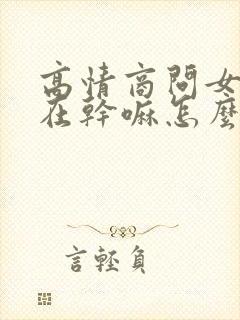 高情商問女
在幹嘛怎麼
言輕負